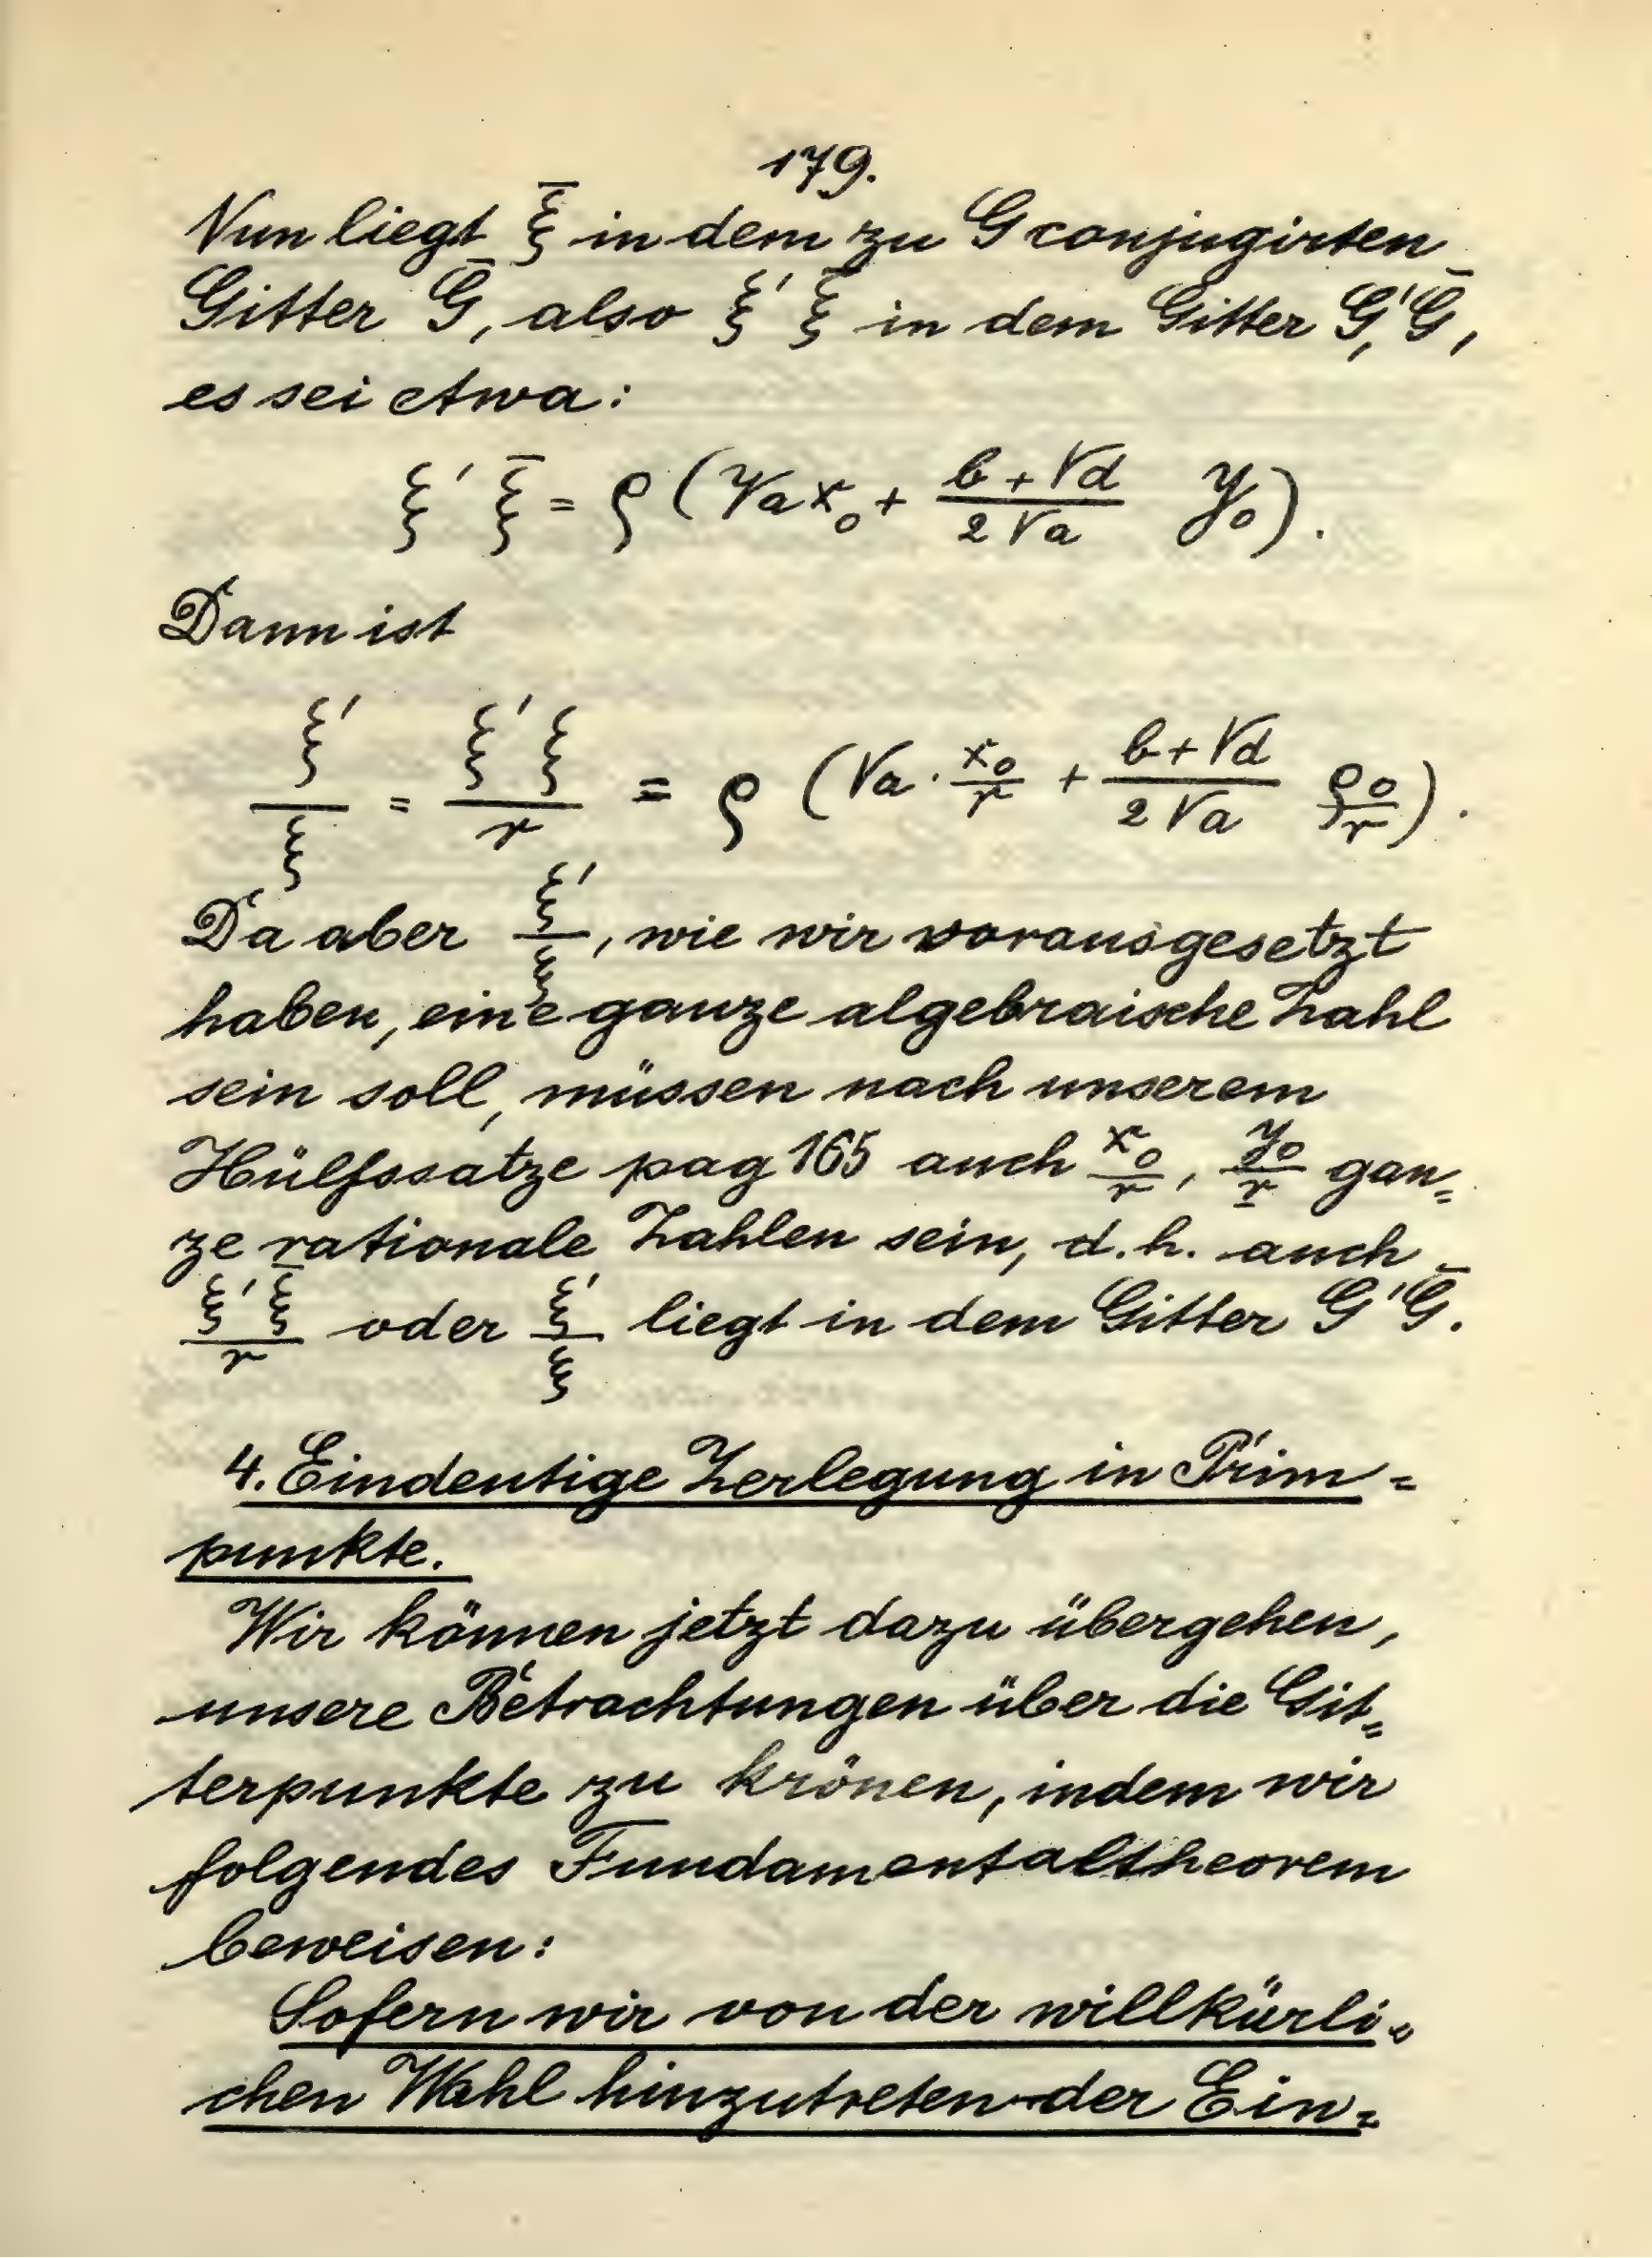 179.
Nun liegt ξ̄ in dem zu G conjugirten
Gitter Ḡ, also ξ' ξ̄ in dem Gitter G',Ḡ,
es sei etwa:
ξ' ξ̄ = ρ (√a x₀ + (b+√d)/(2√a) y₀).
Dann ist
ξ'/ξ = ξ'ξ/r = ρ (√a · x₀/r + (b+√d)/(2√a) ρ₀/r).
Da aber ξ'/ξ, wie wir vorausgesetzt
haben, eine ganze algebraische Zahl
sein soll, müssen nach unserem
Hülfssatze pag 165 auch x₀/r, y₀/r gan=
ze rationale Zahlen sein, d.h. auch
ξ'ξ̄/r oder ξ'/ξ liegt in dem Gitter G'Ḡ.
4. Eindeutige Zerlegung in Prim=
punkte.
Wir können jetzt dazu übergehen,
unsere Betrachtungen über die Git=
terpunkte zu krönen, indem wir
folgendes Fundamentaltheorem
beweisen:
Sofern wir von der willkürli=
chen Wahl hinzutreten der Ein=